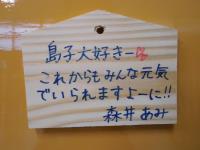 島子大好きー
これからもみんな元気
でいられますよーに!!
森井あみ